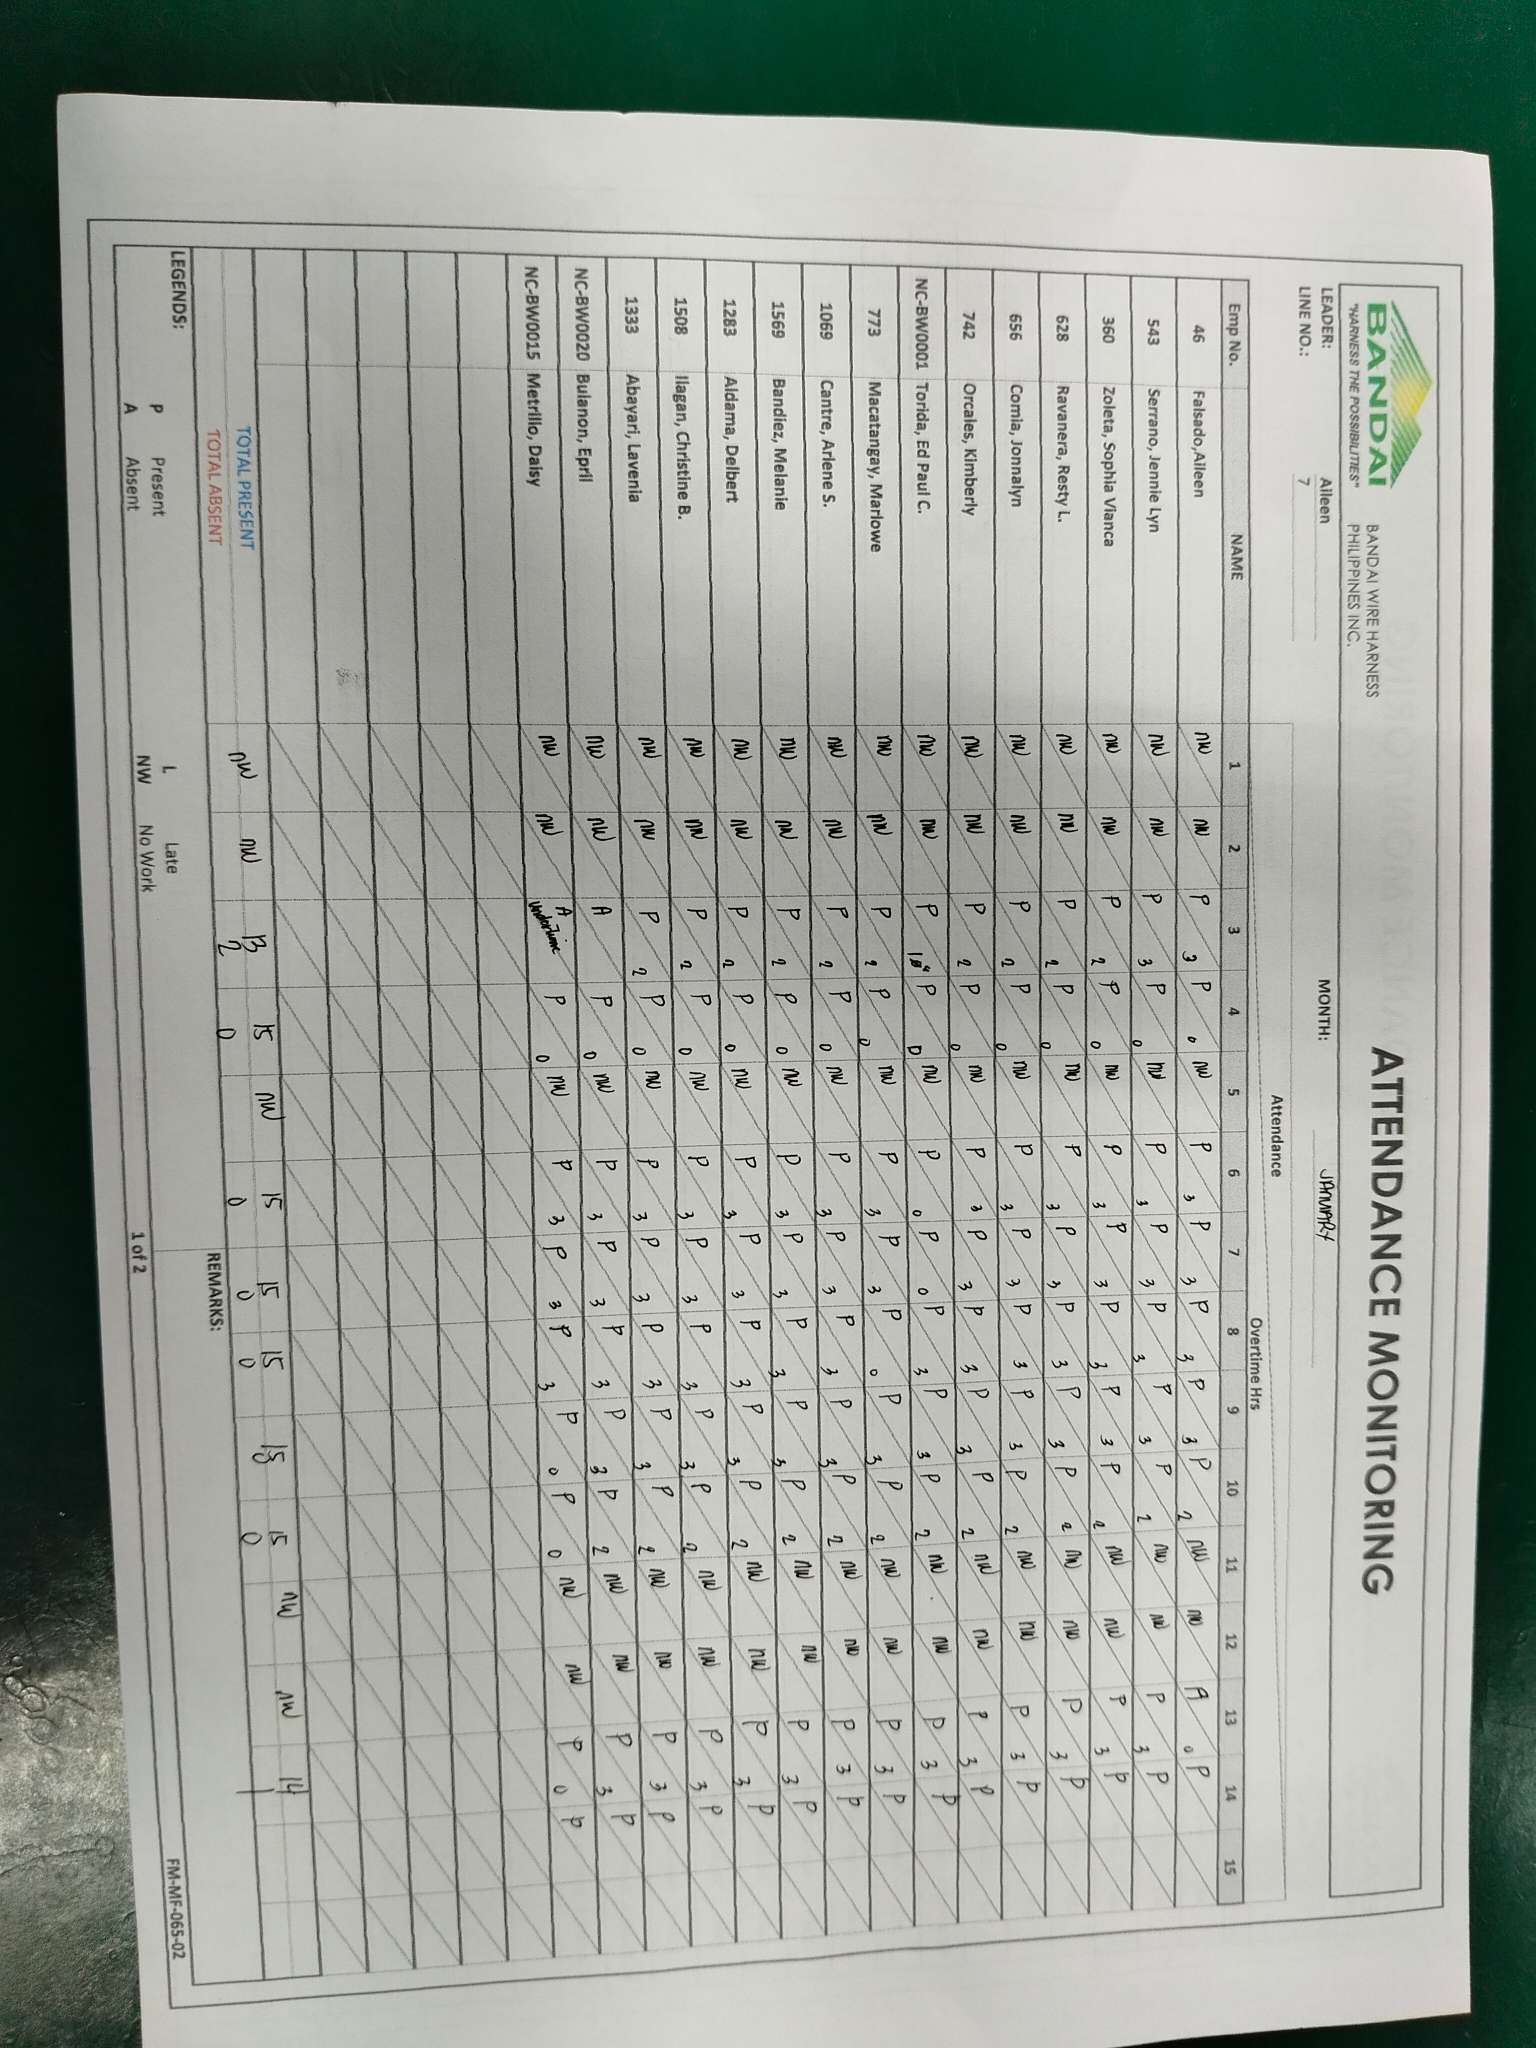 BANDAI
"HARNESS THE POSSIBILITIES"
BANDAI WIRE HARNESS
PHILIPPINES INC.
ATTENDANCE MONITORING
LEADER: Aileen MONTH: JANUARY
LINE NO.: 7
Attendance
Overtime Hrs
Emp No. NAME 1 2 3 4 5 6 7 8 9 10 11 12 13 14 15
46 Falsado,Aileen NW NW P 3 P 0 NW P 3 P 3 P 3 P 3 P 2 NW NW A 0 P
543 Serrano, Jennie Lyn NW NW P 3 P 0 NW P 3 P 3 P 3 P 3 P 2 NW NW P 3 P
360 Zoleta, Sophia Vianca NW NW P 2 P 0 NW P 3 P 3 P 3 P 3 P 2 NW NW P 3 P
628 Ravanera, Resty L. NW NW P 2 P 0 NW P 3 P 3 P 3 P 3 P 2 NW NW P 3 P
656 Comia, Jonnalyn NW NW P 2 P 0 NW P 3 P 3 P 3 P 3 P 2 NW NW P 3 P
742 Orcales, Kimberly NW NW P 2 P 0 NW P 3 P 3 P 3 P 3 P 2 NW NW P 3 P
NC-BW0001 Torida, Ed Paul C. NW NW P P 0 NW P 0 P 0 P 3 P 3 P 2 NW NW P 3 P
773 Macatangay, Marlowe NW NW P 2 P 0 NW P 3 P 3 P 0 P 3 P 2 NW NW P 3 P
1069 Cantre, Arlene S. NW NW P 2 P 0 NW P 3 P 3 P 3 P 3 P 2 NW NW P 3 P
1569 Bandiez, Melanie NW NW P 2 P 0 NW P 3 P 3 P 3 P 3 P 2 NW NW P 3 P
1283 Aldama, Delbert NW NW P 2 P 0 NW P 3 P 3 P 3 P 3 P 2 NW NW P 3 P
1508 Ilagan, Christine B. NW NW P 2 P 0 NW P 3 P 3 P 3 P 3 P 2 NW NW P 3 P
1333 Abayari, Lavenia NW NW P 2 P 0 NW P 3 P 3 P 3 P 3 P 2 NW NW P 3 P
NC-BW0020 Bulanon, Epril NW NW A P 0 NW P 3 P 3 P 3 P 3 P 2 NW NW P 3 P
NC-BW0015 Metrillo, Daisy NW NW A undertime P 0 NW P 3 P 3 P 3 P 0 P 0 NW NW P 0 P
TOTAL PRESENT NW NW 13 15 NW 15 15 15 15 15 NW NW 14
TOTAL ABSENT 2 0 0 0 0 0 1
LEGENDS: REMARKS:
P Present L Late
A Absent NW No Work
1 of 2
FM-MF-065-02